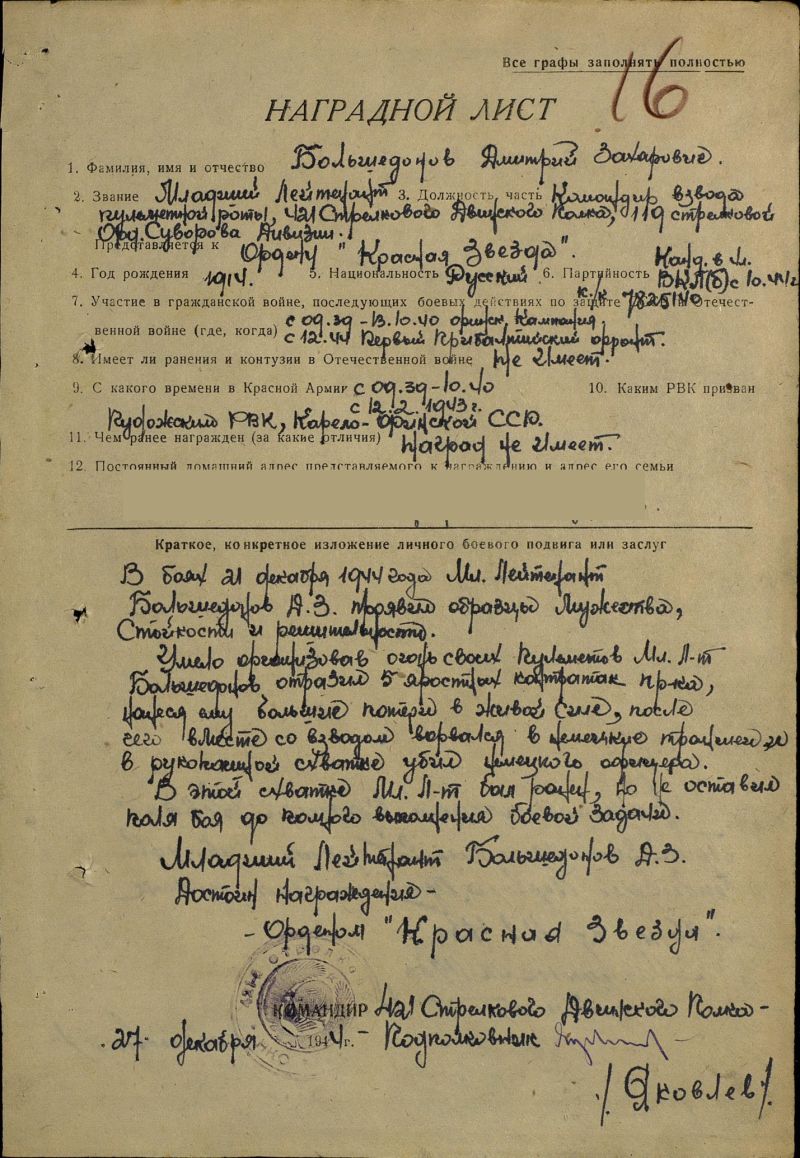 Все графы заполнять полностью
16
НАГРАДНОЙ ЛИСТ
1. Фамилия, имя и отчество Большедонов Дмитрий Захарович.
2. Звание Младший Лейтенант 3. Должность, часть Командир взвода
пулеметной роты, 421 Стрелкового Двинского Полка, 119 стрелковой
Орд. Суворова Дивизии.
Представляется к Ордену "Красная Звезда".
Канд. в чл.
4. Год рождения 1914. 5. Национальность Русский 6. Партийность ВКП(б) с 10.44 г
к/к 7825140
7. Участие в гражданской войне, последующих боевых действиях по защите Отечест-
с 09.39-13.10.40 финск. Кампания,
венной войне (где, когда) с 12.44 Первый Прибалтийский фронт.
8. Имеет ли ранения и контузии в Отечественной войне Не Имеет.
9. С какого времени в Красной Армии с 09.39-10.40 10. Каким РВК призван
с 12.2.1943 г.
Пудожским РВК, Карело-Финской ССР.
11. Чем ранее награжден (за какие отличия) Наград не Имеет.
12. Постоянный домашний адрес представляемого к награждению и адрес его семьи
Краткое, конкретное изложение личного боевого подвига или заслуг
В боях 21 декабря 1944 года Мл. Лейтенант
Большедонов Д.З. проявил образцы Мужества,
Стойкости и решительности.
Умело организовав огонь своих Пулеметов Мл. Л-т
Большедонов отразил 5 яростных контратак пр-ка,
нанеся ему большие потери в живой силе, после
чего вместе со взводом ворвался в немецкие траншеи и
в рукопашной схватке убил немецкого офицера.
В этой схватке Мл. Л-т был ранен, но не оставил
поля боя до полного выполнения боевой задачи.
Младший Лейтенант Большедонов Д.З.
Достоин Награждения-
-Орденом "Красная Звезда".
КОМАНДИР 421 Стрелкового Двинского Полка-
.27. декабря 1944 г.- Подполковник
/Яковлев/